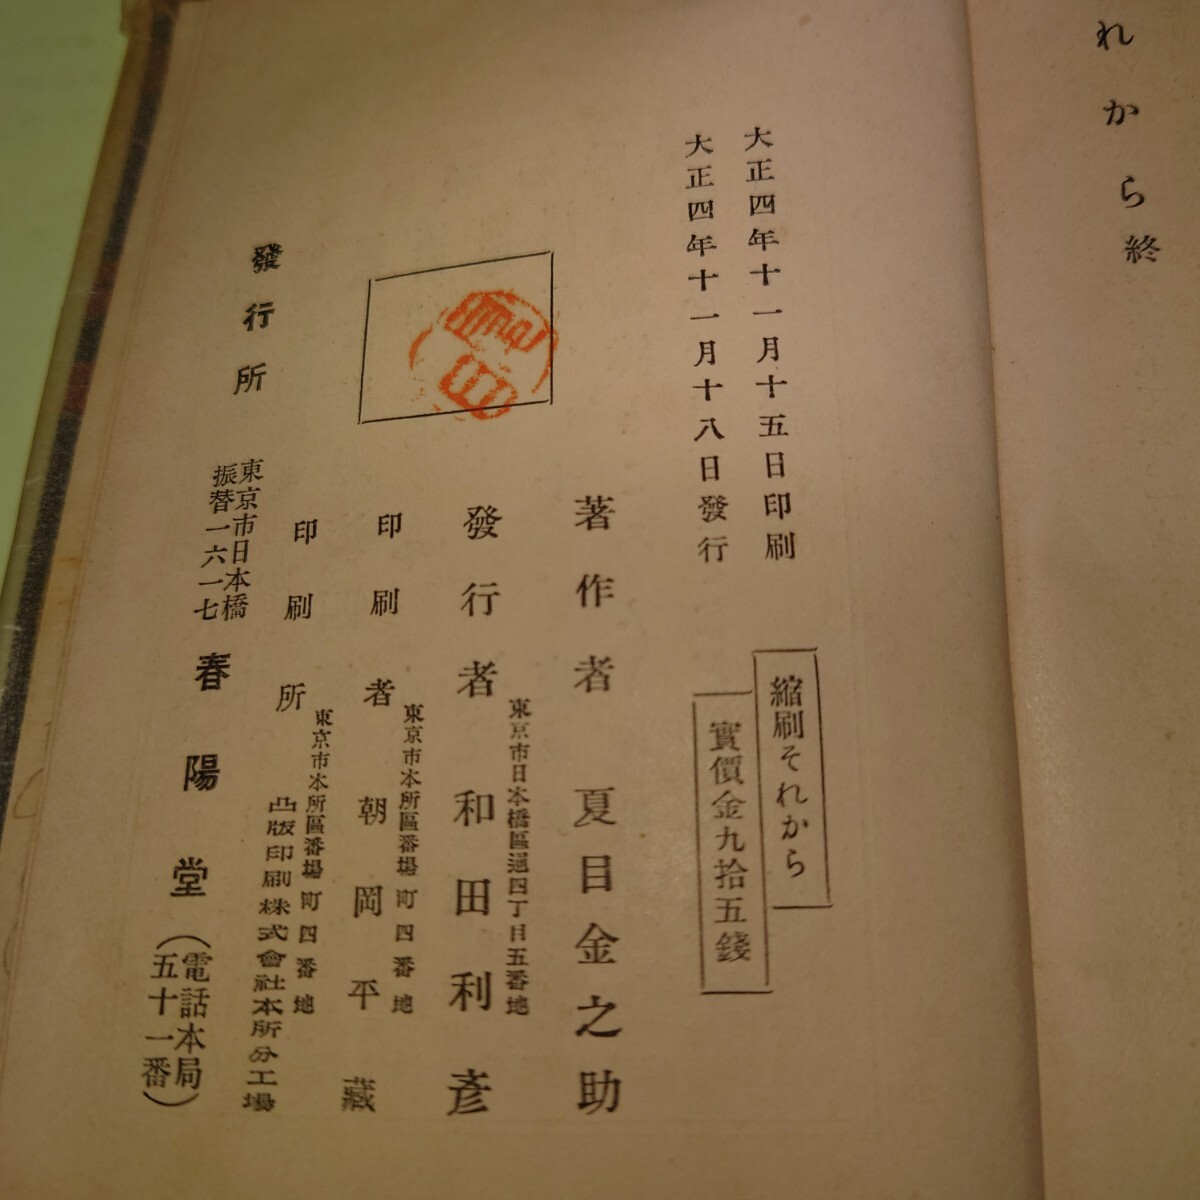 れから終
大正四年十一月十五日印刷
大正四年十一月十八日發行
縮刷それから
實價金九拾五錢
著作者 夏目金之助
東京市日本橋區通四丁目五番地
發行者 和田利彥
東京市本所區番場町四番地
印刷者 朝岡平藏
東京市本所區番場町四番地
印刷所 凸版印刷株式會社本所分工場
發行所
東京市日本橋
振替一六一七
春陽堂
(電話本局
五十一番)